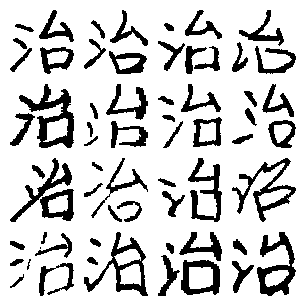 治治治治
治治治治
治治治治
治治治治